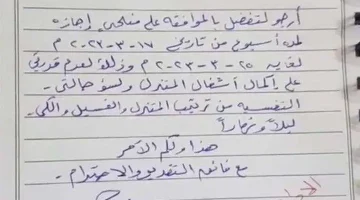 أرجو التفضل بالموافقه على منحي إجازه
لمدة أسبوع من تاريخ ١٧-٣-٢٠٢٣ م
لغاية ٢٥-٣-٢٠٢٣ م وذلك لعدم قدرتي
على إكمال أشغال المنزل ولسوء حالتي -
النفسيه من ترتيب المنزل والغسيل والكي.
ليلاً ونهاراً
هذا ولكم الأمر
مع فائق التقدير والاحترام -